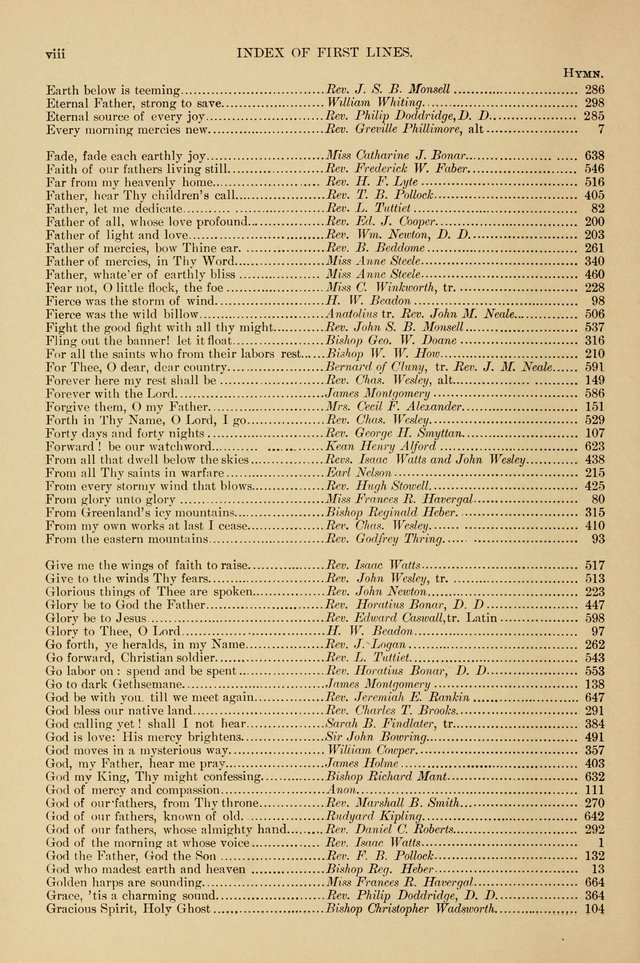 viii INDEX OF FIRST LINES.
HYMN.
Earth below is teeming Rev. J. S. B. Monsell 286
Eternal Father, strong to save William Whiting 298
Eternal source of every joy Rev. Philip Doddridge, D. D. 285
Every morning mercies new Rev. Greville Phillimore, alt 7
Fade, fade each earthly joy Miss Catharine J. Bonar 638
Faith of our fathers living still Rev. Frederick W. Faber 546
Far from my heavenly home Rev. H. F. Lyte 516
Father, hear Thy children's call Rev. T. B. Pollock 405
Father, let me dedicate Rev. L. Tuttiet 82
Father of all, whose love profound Rev. Ed. J. Cooper 200
Father of light and love Rev. Wm. Newton, D. D. 203
Father of mercies, bow Thine ear Rev. B. Beddome 261
Father of mercies, in Thy Word Miss Anne Steele 340
Father, whate'er of earthly bliss Miss Anne Steele 460
Fear not, O little flock, the foe Miss C. Winkworth, tr. 228
Fierce was the storm of wind H. W. Beadon 98
Fierce was the wild billow Anatolius tr. Rev. John M. Neale 506
Fight the good fight with all thy might Rev. John S. B. Monsell 537
Fling out the banner! let it float Bishop Geo. W. Doane 316
For all the saints who from their labors rest Bishop W. W. How 210
For Thee, O dear, dear country Bernard of Cluny, tr. Rev. J. M. Neale 591
Forever here my rest shall be Rev. Chas. Wesley, alt 149
Forever with the Lord James Montgomery 586
Forgive them, O my Father Mrs. Cecil F. Alexander 151
Forth in Thy Name, O Lord, I go Rev. Chas. Wesley 529
Forty days and forty nights Rev. George H. Smyttan 107
Forward! be our watchword Kean Henry Alford 623
From all that dwell below the skies Revs. Isaac Watts and John Wesley 438
From all Thy saints in warfare Earl Nelson 215
From every stormy wind that blows Rev. Hugh Stowell 425
From glory unto glory Miss Frances R. Havergal 80
From Greenland's icy mountains Bishop Reginald Heber 315
From my own works at last I cease Rev. Chas. Wesley 410
From the eastern mountains Rev. Godfrey Thring 93
Give me the wings of faith to raise Rev. Isaac Watts 517
Give to the winds Thy fears Rev. John Wesley, tr. 513
Glorious things of Thee are spoken Rev. John Newton 223
Glory be to God the Father Rev. Horatius Bonar, D. D 447
Glory be to Jesus Rev. Edward Caswall, tr. Latin 598
Glory to Thee, O Lord H. W. Beadon 97
Go forth, ye heralds, in my Name Rev. J. Logan 262
Go forward, Christian soldier Rev. L. Tuttiet 543
Go labor on: spend and be spent Rev. Horatius Bonar, D. D 553
Go to dark Gethsemane James Montgomery 138
God be with you till we meet again Rev. Jeremiah E. Rankin 647
God bless our native land Rev. Charles T. Brooks 291
God calling yet! shall I not hear Sarah B. Findlater, tr. 384
God is love: His mercy brightens Sir John Bowring 491
God moves in a mysterious way William Cowper 357
God, my Father, hear me pray James Holme 403
God my King, Thy might confessing Bishop Richard Mant 632
God of mercy and compassion Anon. 111
God of our fathers, from Thy throne Rev. Marshall B. Smith 270
God of our fathers, known of old Rudyard Kipling 642
God of our fathers, whose almighty hand Rev. Daniel C. Roberts 292
God of the morning at whose voice Rev. Isaac Watts 1
God the Father, God the Son Rev. F. B. Pollock 132
God who madest earth and heaven Bishop Reg. Heber 13
Golden harps are sounding Miss Frances R. Havergal 664
Grace, 'tis a charming sound Rev. Philip Doddridge, D. D. 364
Gracious Spirit, Holy Ghost Bishop Christopher Wadsworth 104